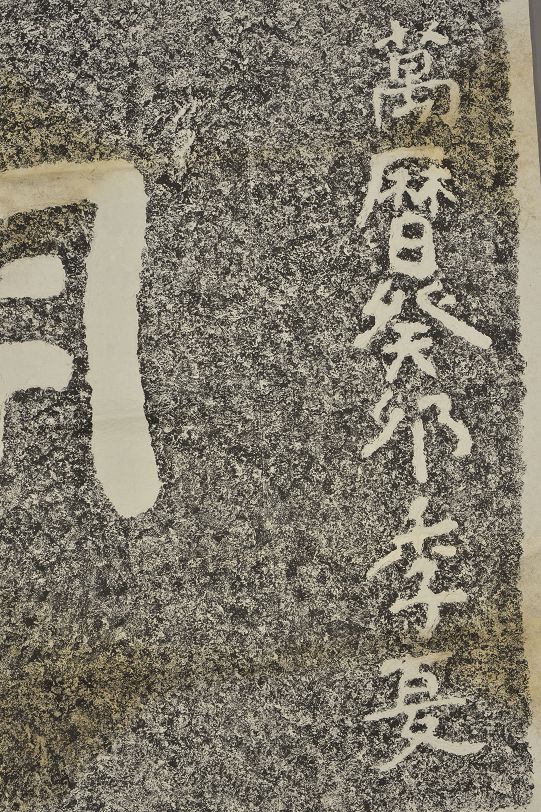 萬曆癸卯季夏